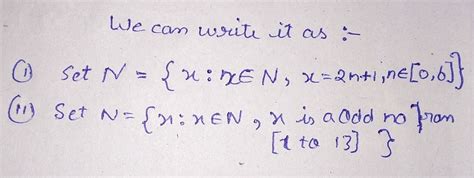 We can write it as :-
(i) Set N = { x : x ∈ N, x = 2n+1, n ∈ [0,6] }
(ii) Set N = { x : x ∈ N, x is a odd no from
[1 to 13] }